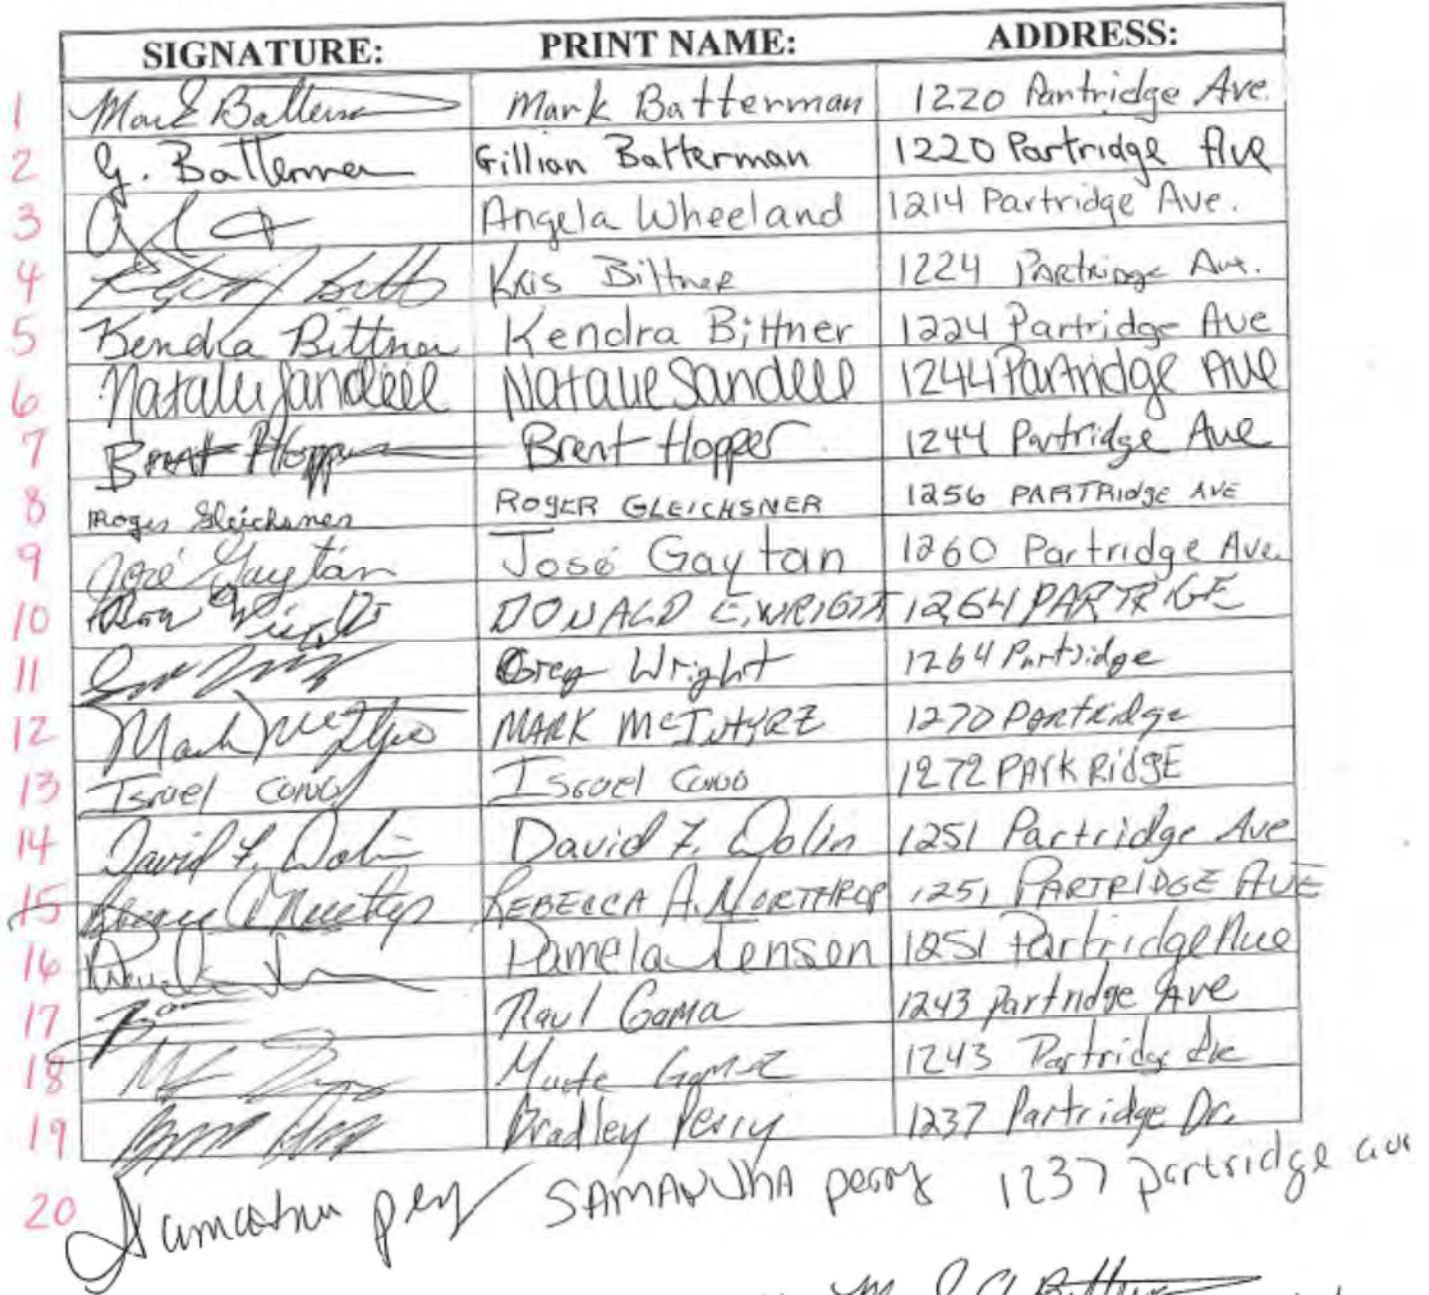 SIGNATURE: PRINT NAME: ADDRESS:
1 Mark Batterman Mark Batterman 1220 Partridge Ave.
2 G. Batterman Gillian Batterman 1220 Partridge Ave
3 Angela Wheeland 1214 Partridge Ave.
4 Kris Bittner 1224 Partridge Ave.
5 Kendra Bittner Kendra Bittner 1224 Partridge Ave
6 Natalie Sandell Natalie Sandell 1244 Partridge Ave
7 Brent Hopper Brent Hopper 1244 Partridge Ave
8 Roger Gleichsner ROGER GLEICHSNER 1256 PARTRIdgE AVE
9 José Gaytán José Gaytan 1260 Partridge Ave.
10 Don Wright DONALD E. WRIGHT 1264 PARTRIGE
11 Greg Wright 1264 Partridge
12 Mark McIntyre MARK McINTYRE 1270 Partridge
13 Israel Israel 1272 PARKRIdgE
14 David F. Dolin David F. Dolin 1251 Partridge Ave
15 REBECCA A. NORTHROP 1251 PARTRIDGE AVE
16 Pamela Jensen 1251 Partridge Ave
17 Raul Gama 1243 Partridge Ave
18 1243 Partridge Ave
19 Bradley Perry 1237 Partridge Dr.
20 Samantha perry SAMANTHA perry 1237 partridge ave